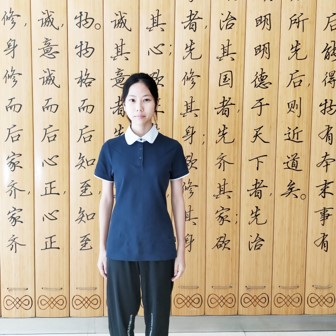 后能得物有本末事有
所先后则近道矣。
明明德于天下者，先治
治其国者，先齐其家；欲
者，先修其身；欲修其身
其心；
诚其意者
物。物格而后知至
诚意诚而后心正，心正
修，身修而后家齐，家齐